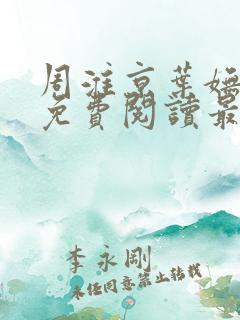 周淮京葉嫵
免費閱讀最
李永剛
未经同意禁止转载